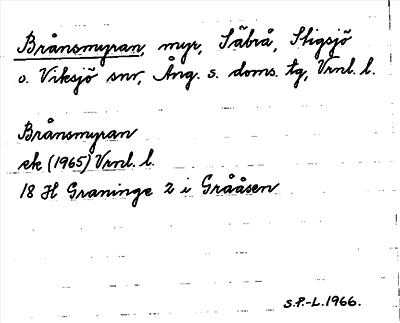 Brånsmyran, myr, Säbrå, Stigsjö
o. Viksjö snr, Ång. s. doms. tg, Vrnl. l.
Brånsmyran
ek (1965) Vrnl. l.
18 H Graninge 2 i Grååsen
S.P.-L.1966.